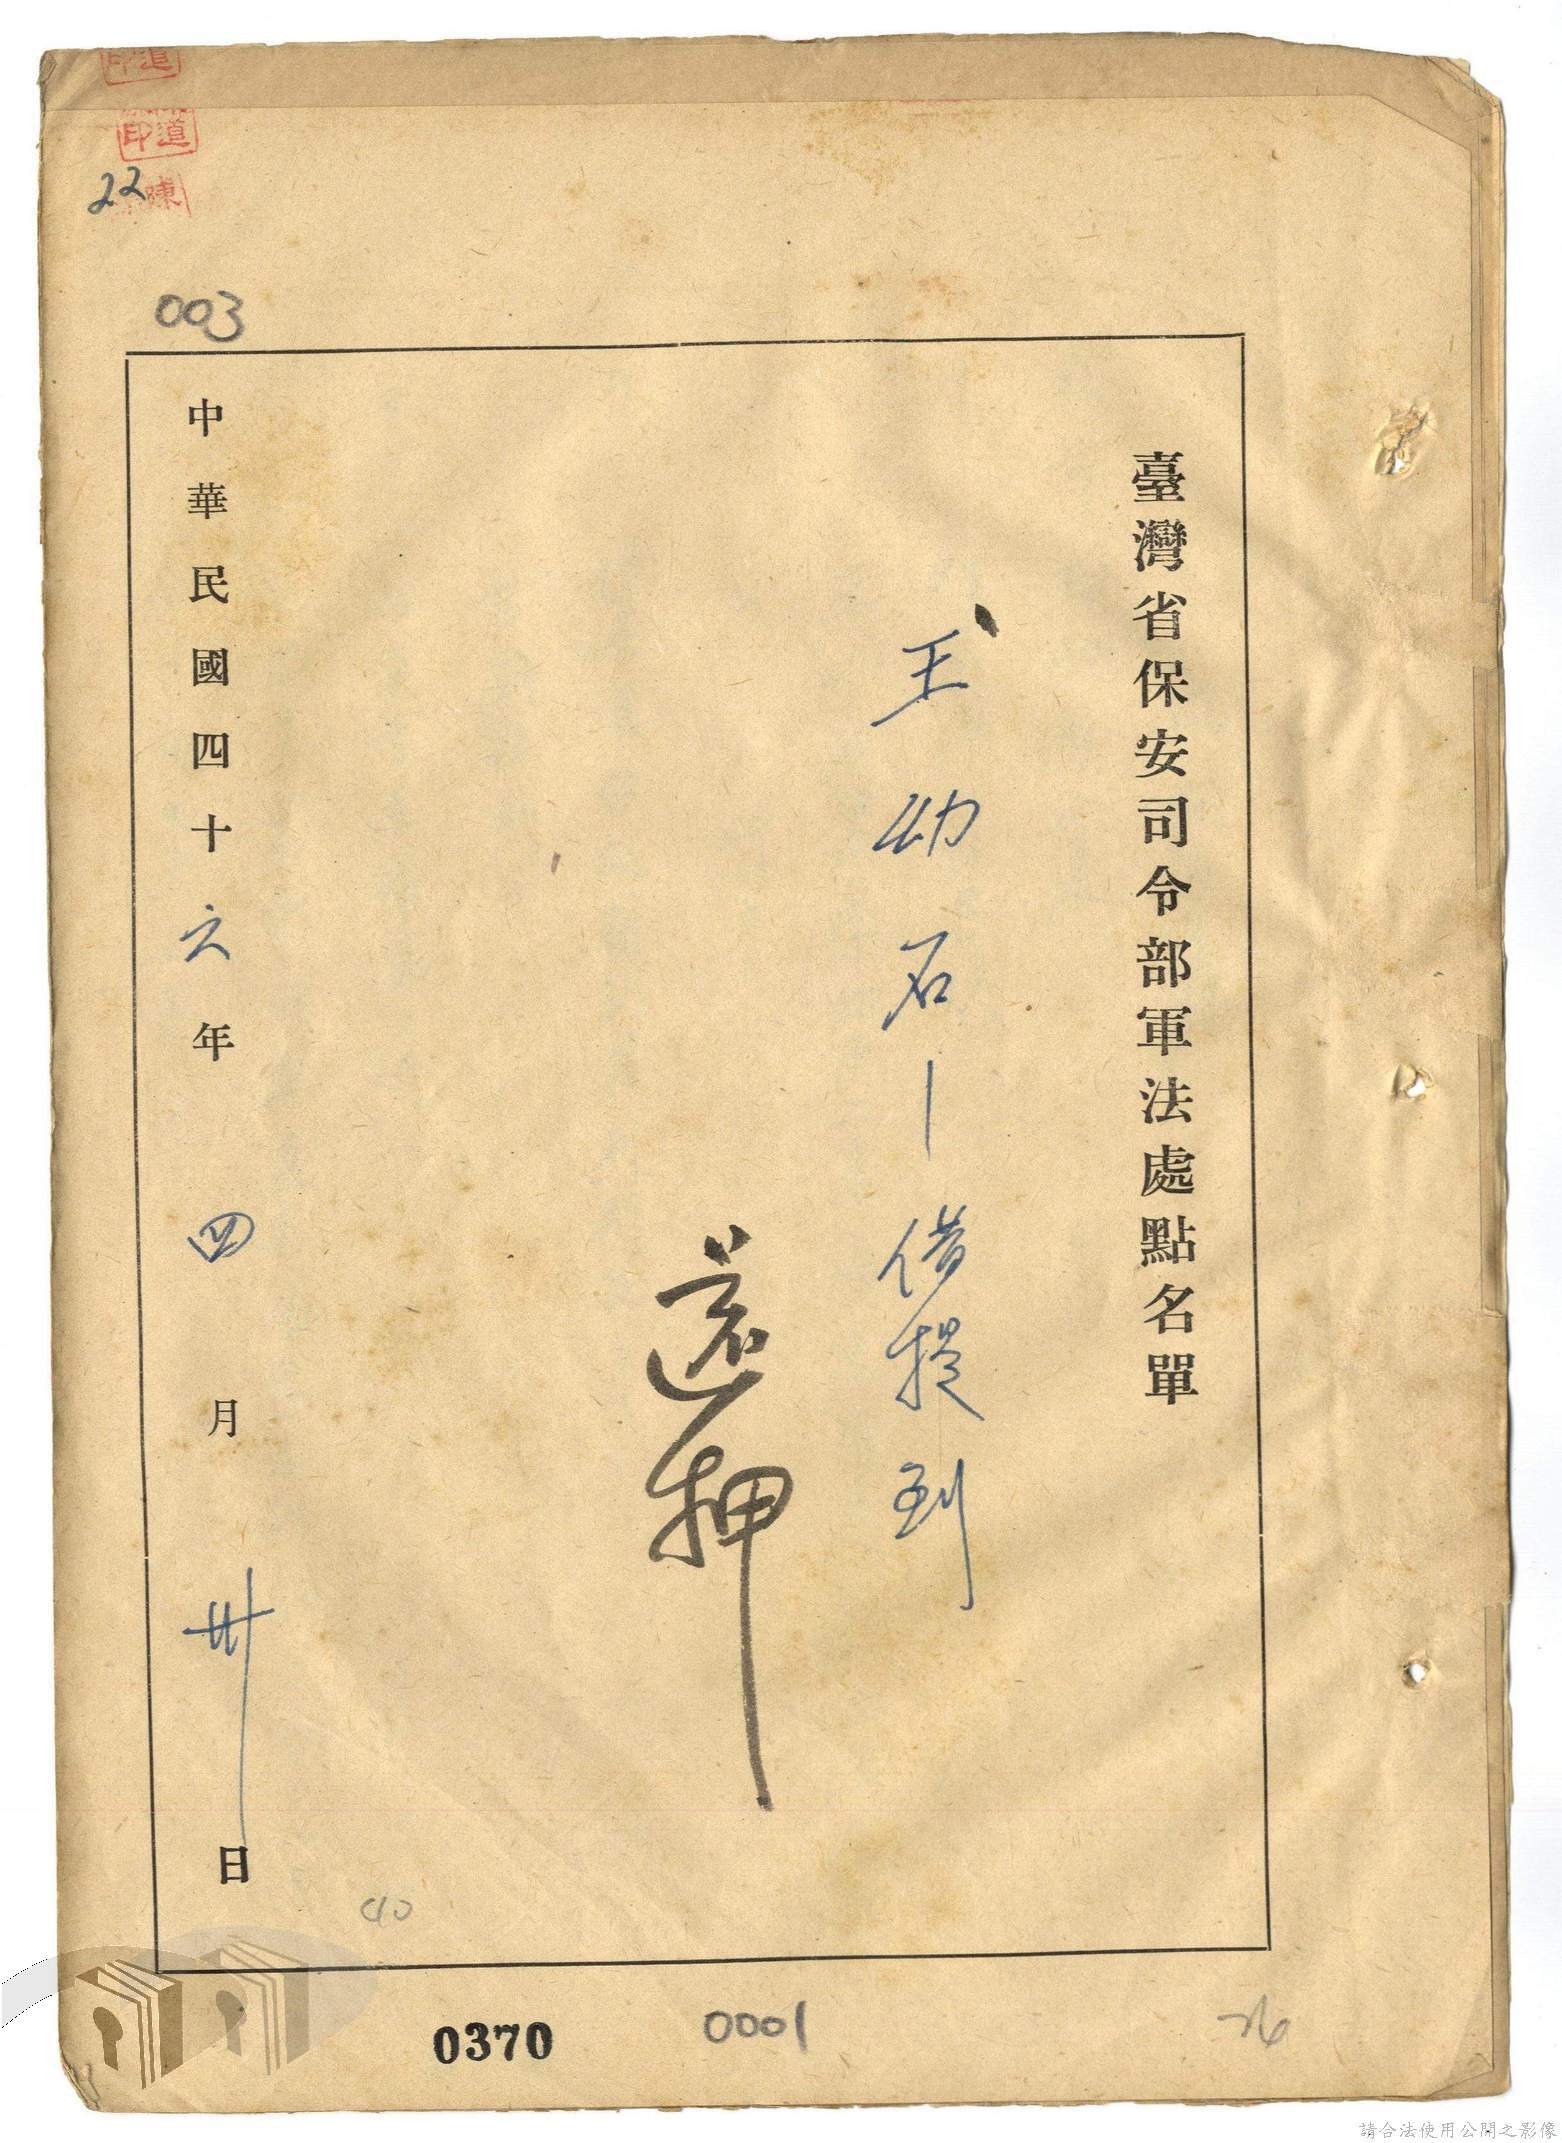 臺灣省保安司令部軍法處點名單
王幼石—借提到
還押
中華民國四十六年四月卅日
道
印
道
印
陳
22
003
40
0370
0001
26
請合法使用公開之影像